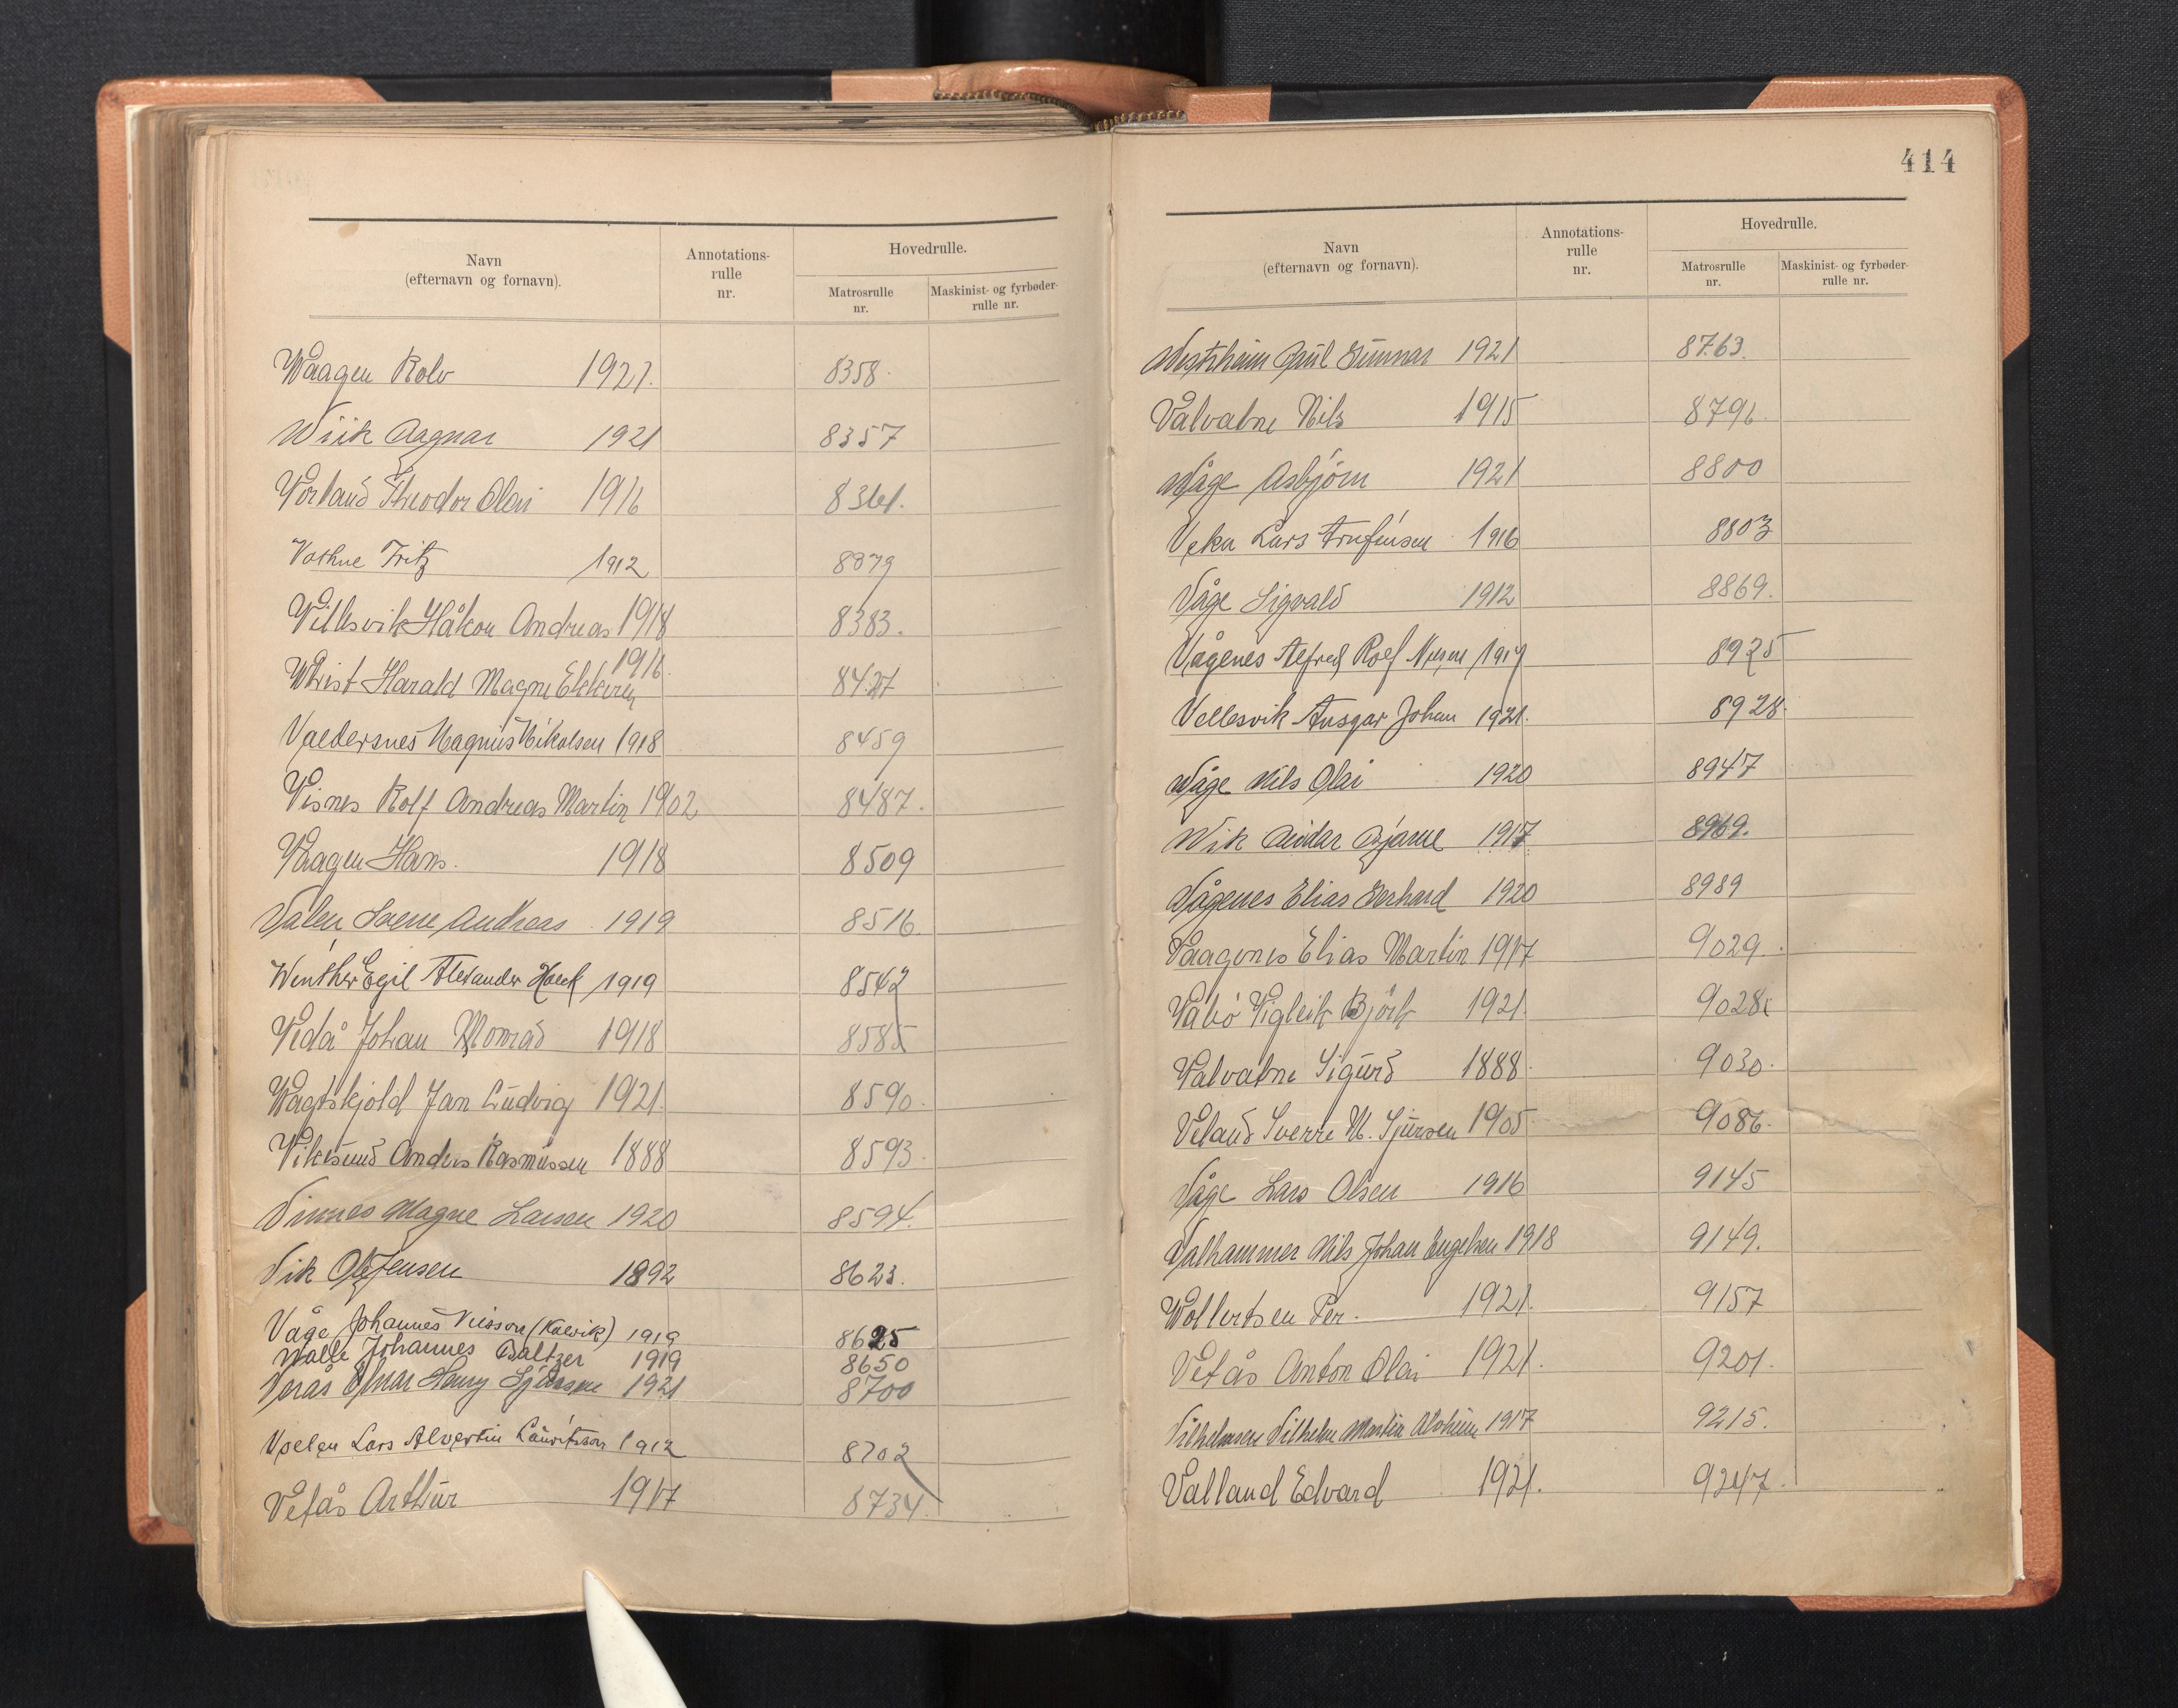 Navn
(efternavn og fornavn).
Annotations-
rulle
nr.
Hovedrulle.
Matrosrulle
nr.
Maskinist- og fyrbøder-
rulle nr.
Waagen Rolv 1921. 8358.
Wiik Ragnar 1921 8357
Vorland Theodor Olai 1916 8361.
Vothne Fritz 1912 8379
Villesvik Håkon Andreas 1918 8383.
1916.
Whist Harald Magne 8427
Valdersnes Magnus Nikolsen 1918 8459
Visnes Rolf Andreas Martin 1902 8487.
Waagen Hans. 1918 8509
Valen Sverre Andreas 1919 8516
Winther Egil Alexander Hoeck 1919 8542
Vedå Johan Monrad 1918 8585
Wagtskjold Jan Ludvig 1921. 8590.
Viksund Anders Rasmussen 1888 8593.
Vinnes Magne Larsen 1920 8594.
Vik Ole Jensen 1892 8623.
Våge Johannes Nilsson (Kalvik) 1919 8625
Walle Johannes Baltzer 1919 8650
Harry 1921 8700
Lars Alvertin Lauritsson 1912 8702
Vetås Arthur 1917 8734.
414
Navn
(efternavn og fornavn).
Annotations-
rulle
nr.
Hovedrulle.
Matrosrulle
nr.
Maskinist- og fyrbøder-
rulle nr.
Westrheim Paul Gunnar 1921 8763.
Valvatne Nils 1915 8796.
Våge Asbjørn 1921 8800
Veka Lars Arnfinsen 1916 8803
Våge Sigvald 1912 8869.
Vågenes Alfred Rolf 1919 8925
Vellesvik Ansgar Johan 1921. 8928.
Våge Nils Olai 1920 8947
Wik Reidar Bjarne 1917 8969.
Vågenes Elias Gerhard 1920 8989
Vaagenes Elias Martin 1917 9029.
Vabø Vigleik Bjørk 1921. 9028.
Valvatne Sigurd 1888. 9030.
Veland Sverre M. Sjursen 1905 9086.
Våge Lars Olsen 1916 9145
Valhammer Nils Johan Engelsen 1918 9149.
Wollertsen Per. 1921. 9157
Vetås Anton Olai 1921. 9201.
Vilhelmsen Vilhelm Martin 1917 9215.
Valland Edvard 1921. 9247.